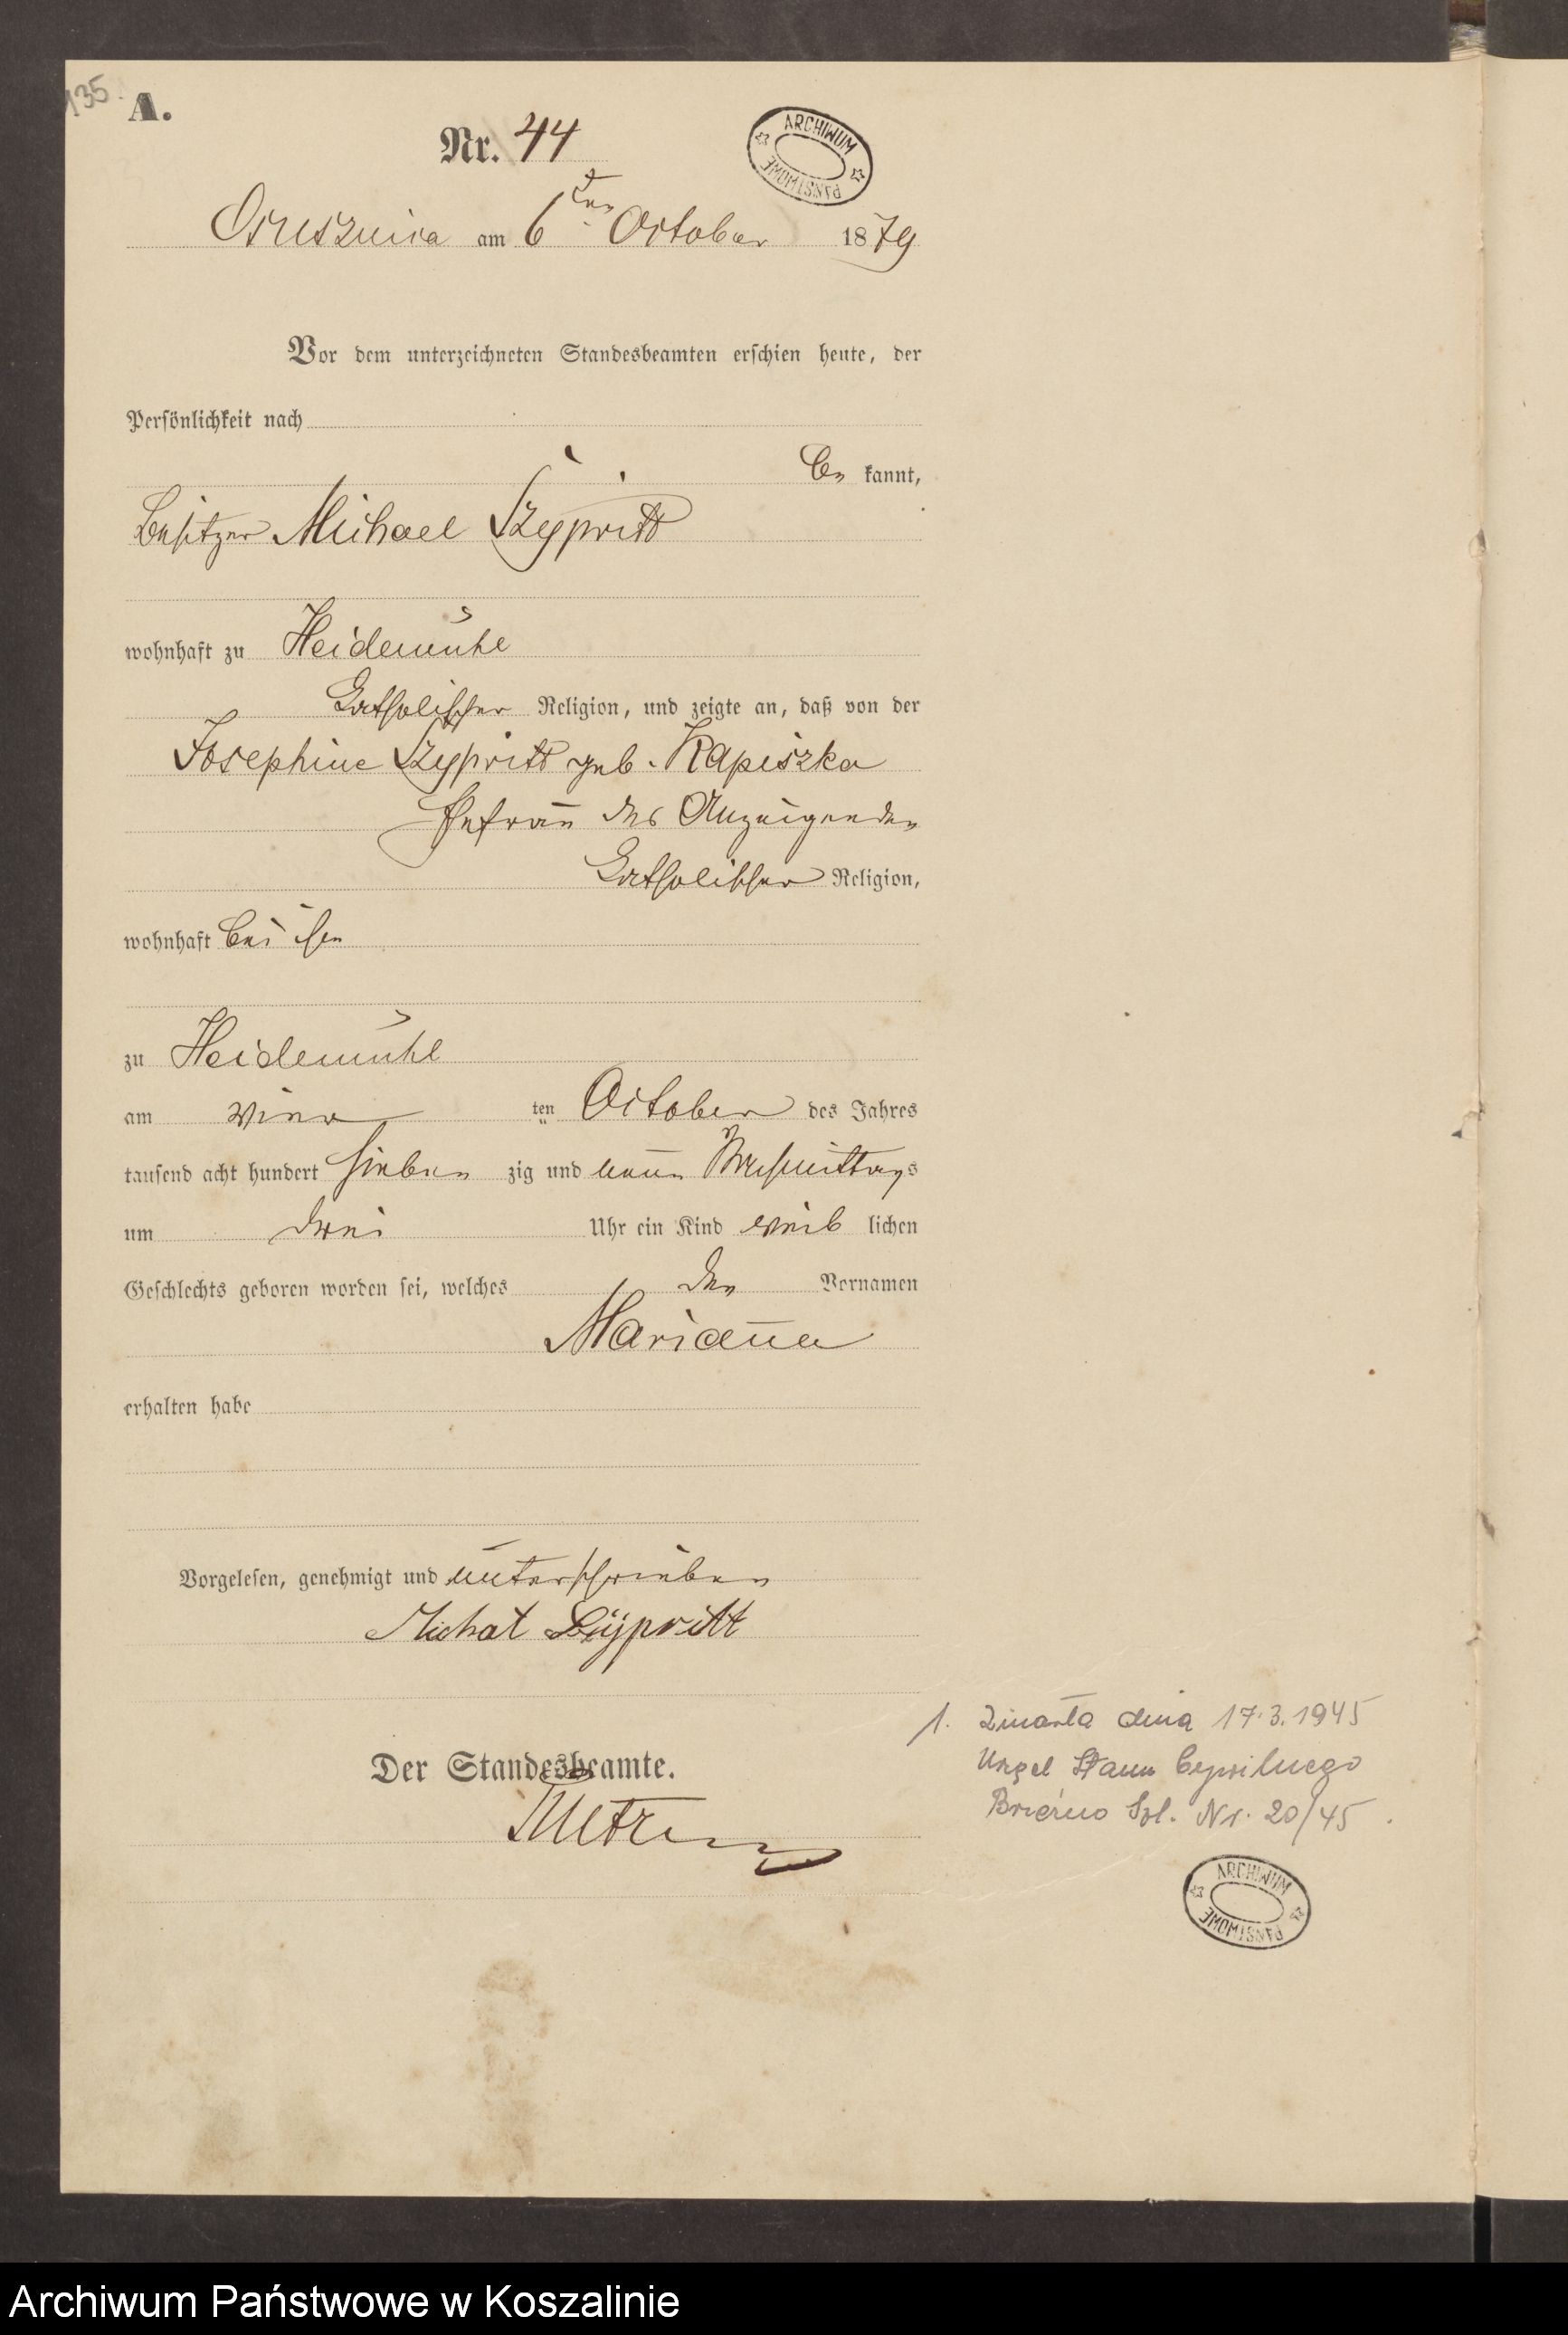 135.
A.
Nr. 44
ARCHIWUM PAŃSTWOWE
Osusznica am 6ten October 1879
Vor dem unterzeichneten Standesbeamten erschien heute, der
Persönlichkeit nach
be kannt,
Besitzer Michael
wohnhaft zu Heidemühl
Katholischer Religion, und zeigte an, daß von der
Josephine geb. Kapiszka
Ehefrau des Anzeigenden
Katholischer Religion,
wohnhaft bei ihm
zu Heidemühl
am vier ten October des Jahres
tausend acht hundert sieben zig und neun Nachmittags
um drei Uhr ein Kind weib lichen
Geschlechts geboren worden sei, welches den Vornamen
Marianna
erhalten habe
Vorgelesen, genehmigt und unterschrieben
Michał
Der Standesbeamte.
1. Zmarła dnia 17.3.1945
Urząd Stanu Cywilnego
Nr. 20/45.
ARCHIWUM PAŃSTWOWE
Archiwum Państwowe w Koszalinie